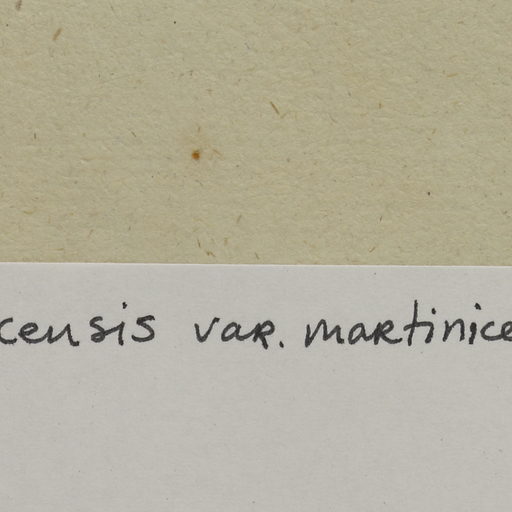 censis var. martinice